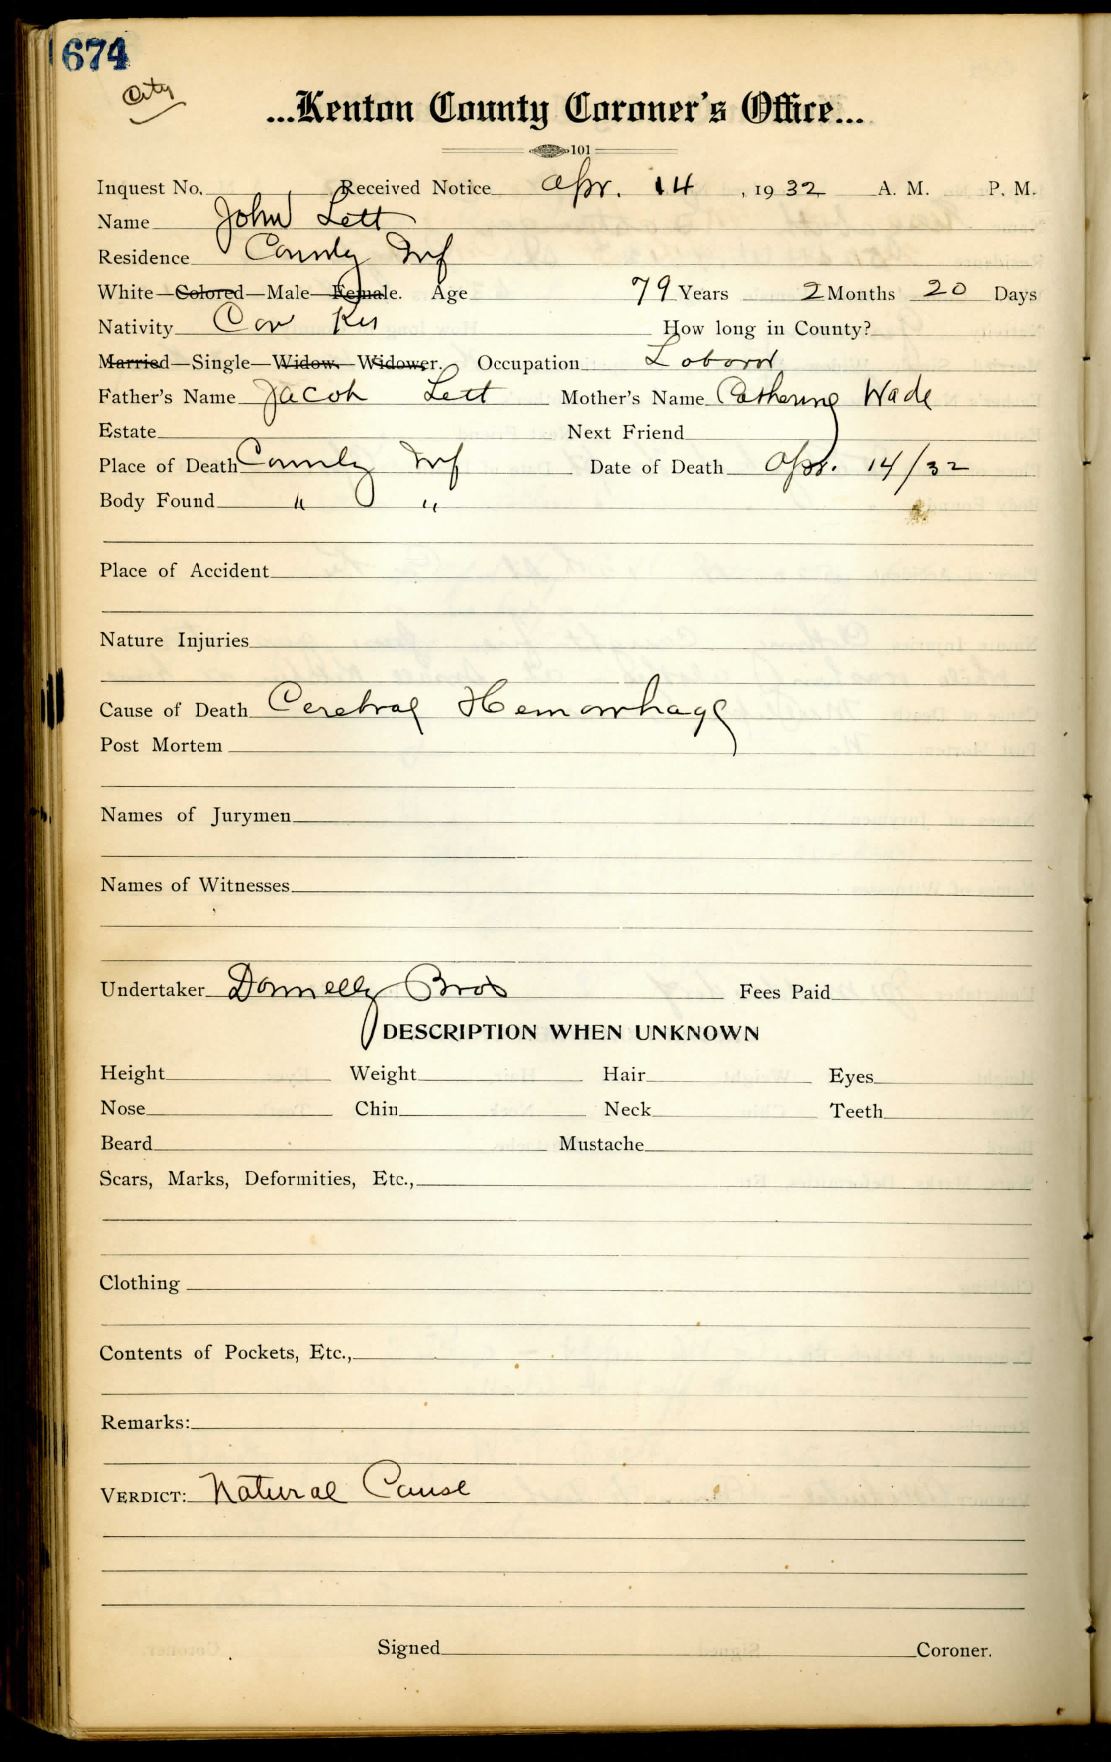 674
City
...Kenton County Coroner's Office...
101
Inquest No. Received Notice Apr. 14, 1932 A. M. P. M.
Name John Lett
Residence County Inf
White—Colored—Male—Female. Age 79 Years 2 Months 20 Days
Nativity Cov Ky How long in County?
Married—Single—Widow—Widower. Occupation Laborer
Father's Name Jacob Lett Mother's Name Catherine Wade
Estate Next Friend
Place of Death County Inf Date of Death Apr. 14/32
Body Found " "
Place of Accident
Nature Injuries
Cause of Death Cerebral Hemorrhage
Post Mortem
Names of Jurymen
Names of Witnesses
Undertaker Donnelly Bros Fees Paid
DESCRIPTION WHEN UNKNOWN
Height Weight Hair Eyes
Nose Chin Neck Teeth
Beard Mustache
Scars, Marks, Deformities, Etc.,
Clothing
Contents of Pockets, Etc.,
Remarks:
VERDICT: Natural Cause
Signed Coroner.